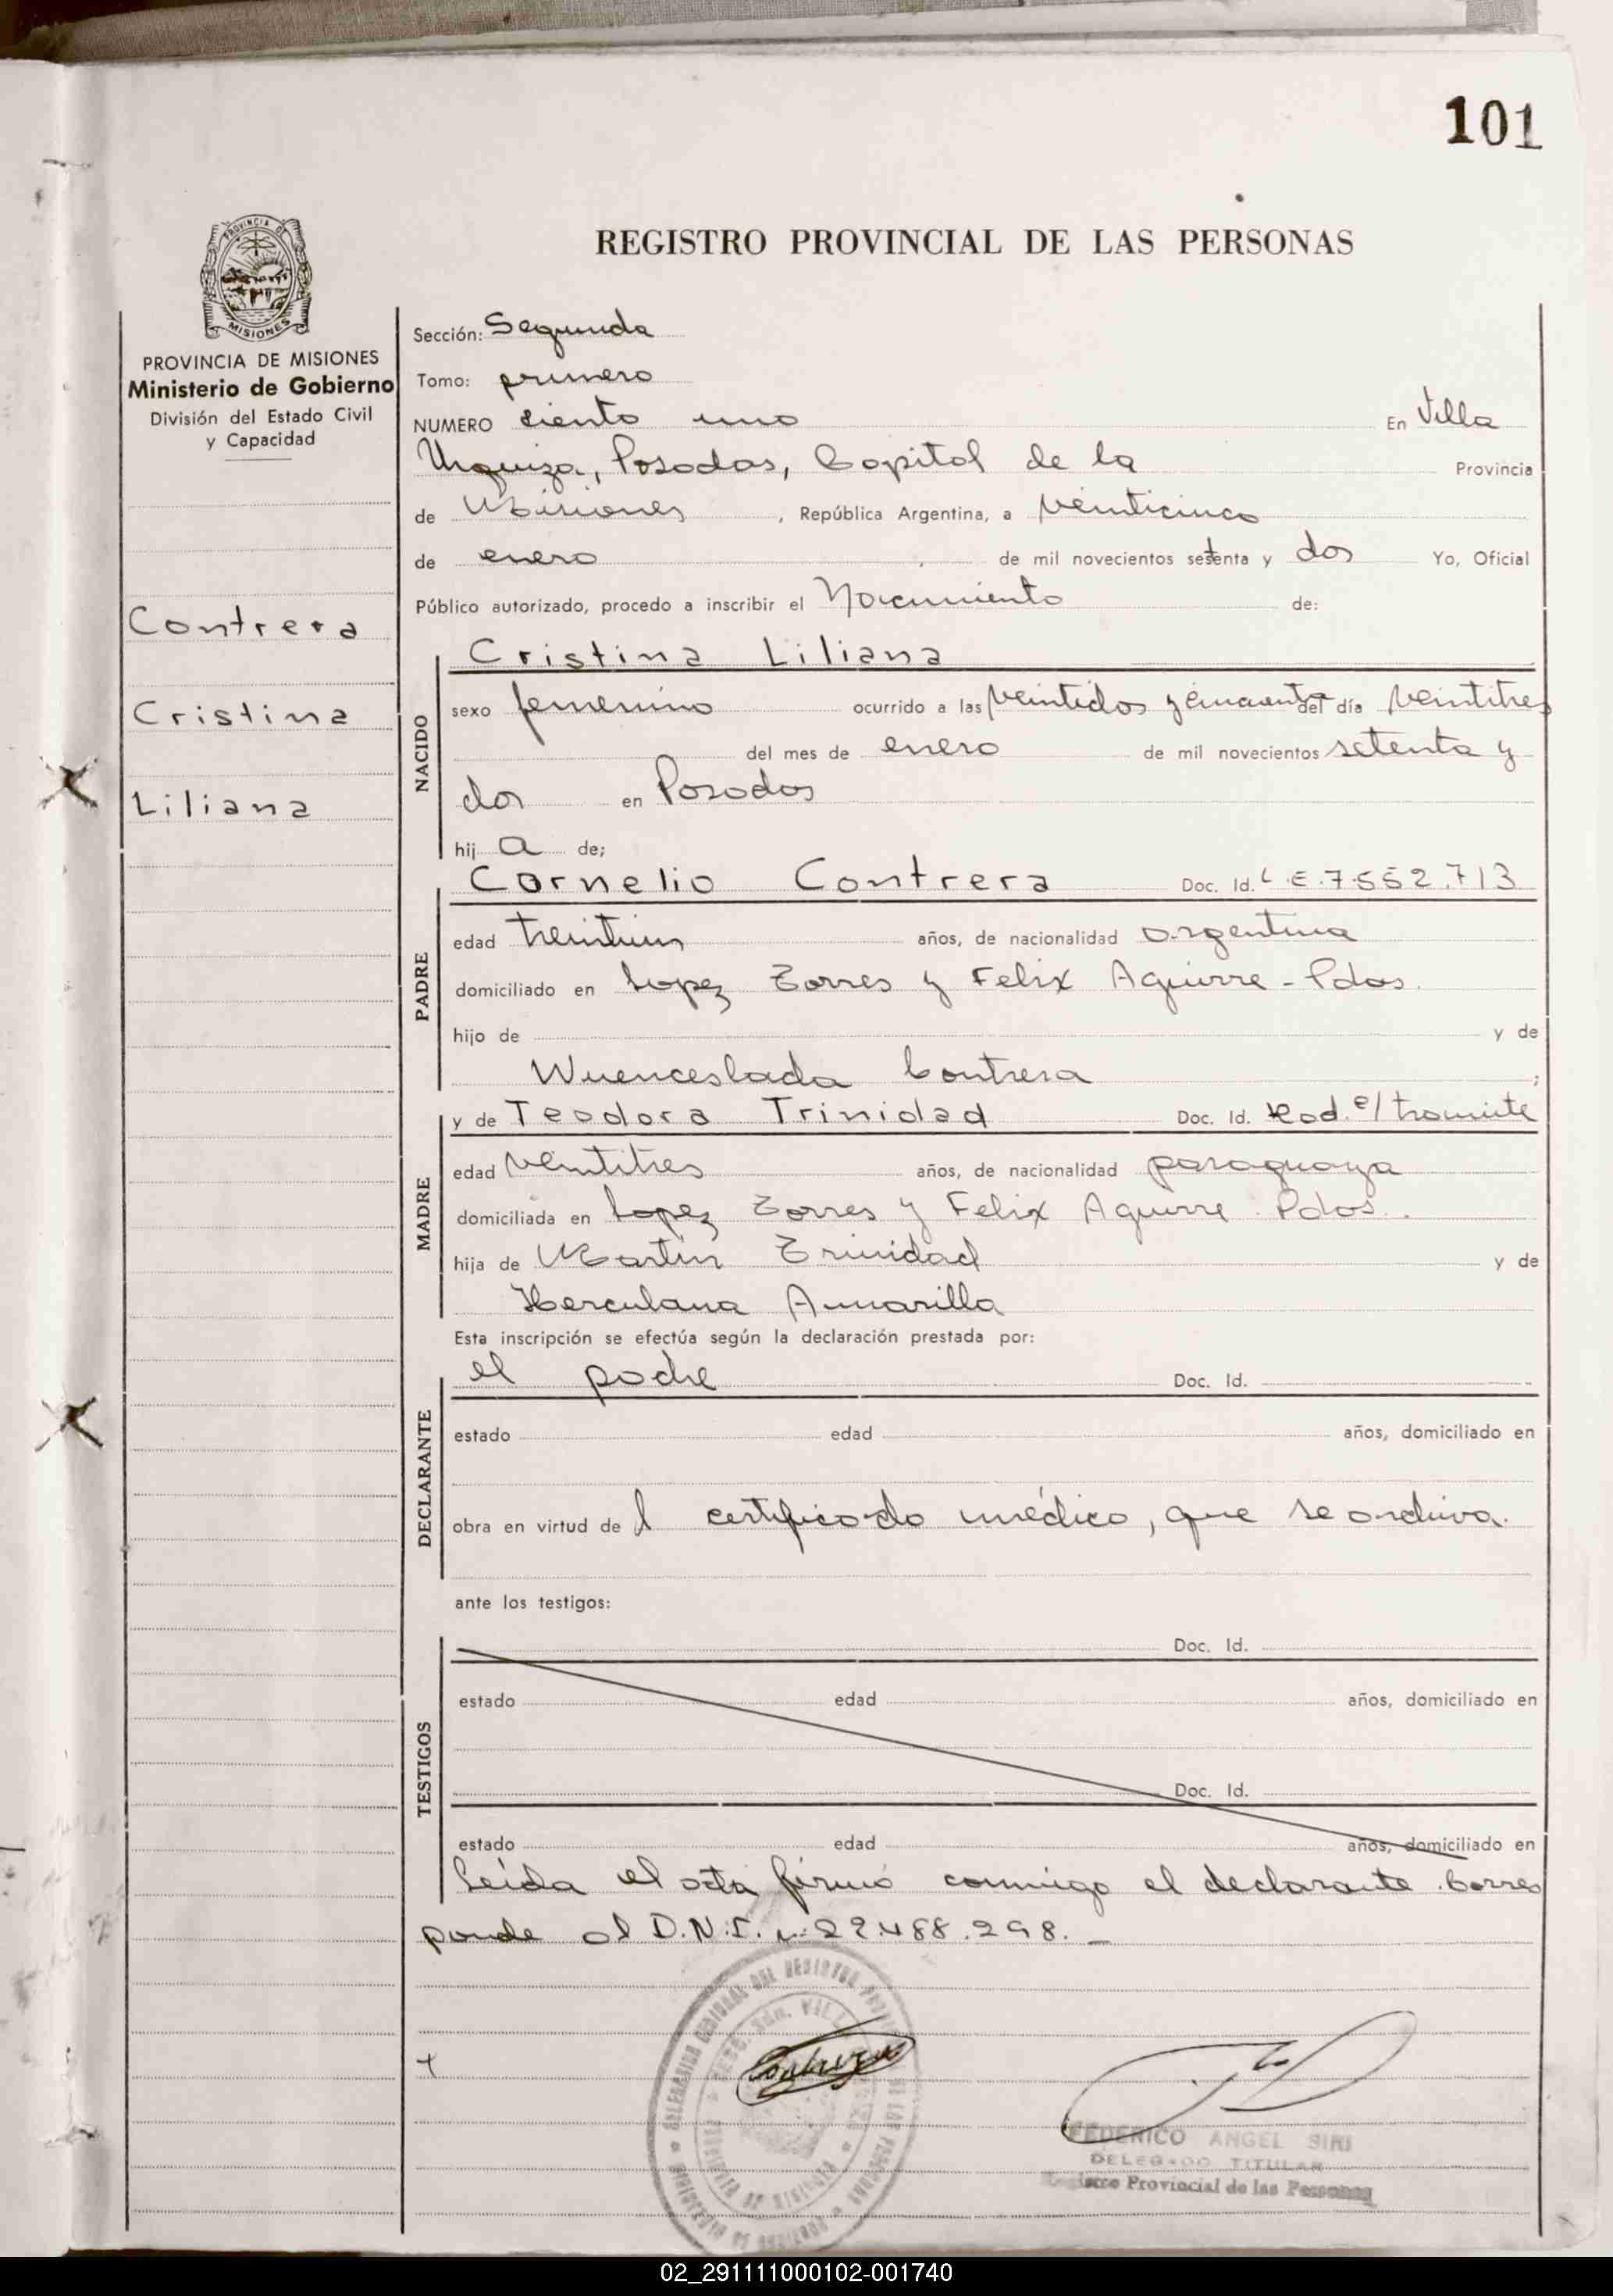 101
REGISTRO PROVINCIAL DE LAS PERSONAS
PROVINCIA DE MISIONES
PROVINCIA DE MISIONES
Ministerio de Gobierno
División del Estado Civil
y Capacidad
Contrera
Cristina
Liliana
Sección: Segunda
Tomo: primero
NUMERO ciento uno En Villa
Urquiza, Posadas, Capital de la Provincia
de Misiones, República Argentina, a veinticinco
de enero de mil novecientos setenta y dos Yo, Oficial
Público autorizado, procedo a inscribir el Nacimiento de:
NACIDO
Cristina Liliana
sexo femenino ocurrido a las veintidos y cincuenta del día veintitres
del mes de enero de mil novecientos setenta y
dos en Posadas
hij a de;
PADRE
Cornelio Contrera Doc. Id. L.E.7.552.713
edad treintiun años, de nacionalidad argentina
domiciliado en Lopez Torres y Felix Aguirre - Pdas.
hijo de y de
Wuenceslada Contrera ;
MADRE
y de Teodora Trinidad Doc. Id. Rad. e/ tramite
edad veintitres años, de nacionalidad paraguaya
domiciliada en Lopez Torres y Felix Aguirre Pdas.
hija de Martin Trinidad y de
Herculana Amarilla
Esta inscripción se efectúa según la declaración prestada por:
DECLARANTE
el padre Doc. Id.
estado edad años, domiciliado en
obra en virtud de l certificado médico, que se archiva.
ante los testigos:
TESTIGOS
Doc. Id.
estado edad años, domiciliado en
Doc. Id.
estado edad años, domiciliado en
Leída el acta firmó conmigo el declarante. Corres
ponde al D.N.I. n: 22.488.298. -
FEDERICO ANGEL SIRI
DELEGADO TITULAR
Registro Provincial de las Personas
02_291111000102-001740